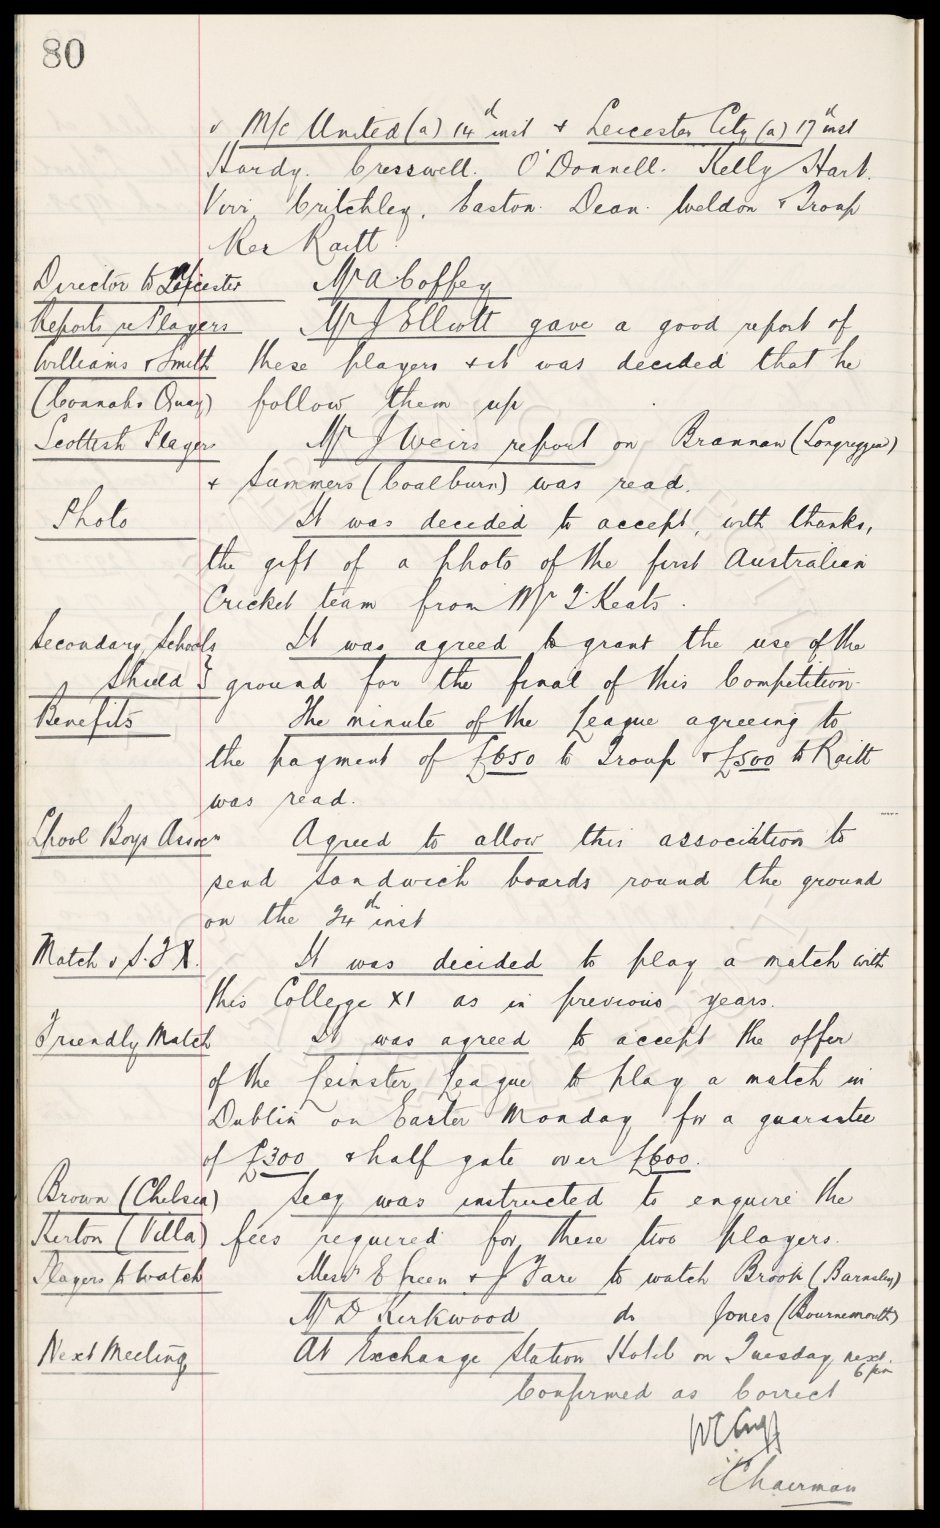 80
v M/c United (a) 14th inst & Leicester City (a) 17th inst
Hardy. Cresswell. O'Donnell. Kelly Hart.
Virr. Critchley. Easton. Dean. Weldon & Troup
Res Raitt.
Director to Leicester Mr A Coffey
Reports re Players Mr J Elliott gave a good report of
Williams & Smith these players & it was decided that he
(Connahs Quay) follow them up
Scottish Players Mr J Weirs report on Brannan (Longriggend)
& Summers (Coalburn) was read.
Photo It was decided to accept, with thanks,
the gift of a photo of the first Australian
Cricket team from Mr T. Keats.
Secondary Schools It was agreed to grant the use of the
Shield } ground for the final of this Competition.
Benefits The minute of the League agreeing to
the payment of £650 to Troup & £500 to Raitt
was read.
Lpool Boys Assocn Agreed to allow this association to
send sandwich boards round the ground
on the 24th inst
Match v S.F.X. It was decided to play a match with
this College XI as in previous years.
Friendly Match It was agreed to accept the offer
of the Leinster League to play a match in
Dublin on Easter Monday for a guarantee
of £300 & half gate over £600.
Brown (Chelsea) Secy was instructed to enquire the
Kirton (Villa) fees required for these two players.
Players to Watch Messrs E Green & J Fare to watch Brook (Barnsley)
Mr D Kirkwood do Jones (Bournemouth)
Next Meeting At Exchange Station Hotel on Tuesday next.
6 pm
Confirmed as Correct
WC Cuff
Chairman